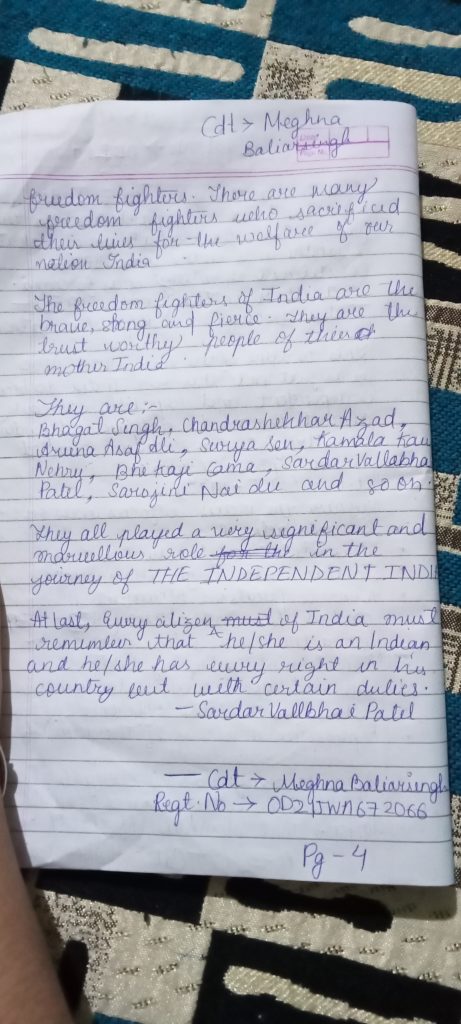 Cdt > Meghna
Baliarsingh
freedom fighters. There are many
freedom fighters who sacrificed
their lives for the welfare of our
nation India
The freedom fighters of India are the
brave, stong and fierce. They are the
trust worthy people of
mother India.
They are :-
Bhagat Singh, Chandrashekhar Azad,
Aruna Asaf Ali, Surya Sen, Kamala Kau
Nehry, Bhekaji Cama, Sardar Vallabha
Patel, Sarojini Naidu and so on.
They all played a very significant and
marvellous role for the in the
journey of THE INDEPENDENT INDI
At last, Every citizen must of India must
remember that he/she is an Indian
and he/she has every right in his
country but with certain duties.
- Sardar Vallbhai Patel
— Cdt → Meghna Baliarsingh
Regt. No → OD21JWA672066
Pg - 4